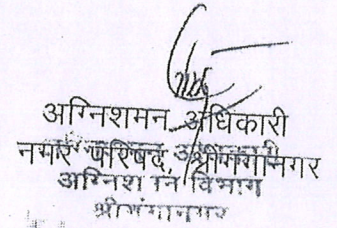 अग्निशमन अधिकारी
नगर परिषद, श्रीगंगानगर
अधिकारी
अग्निशमन विभाग
श्रीगंगानगर